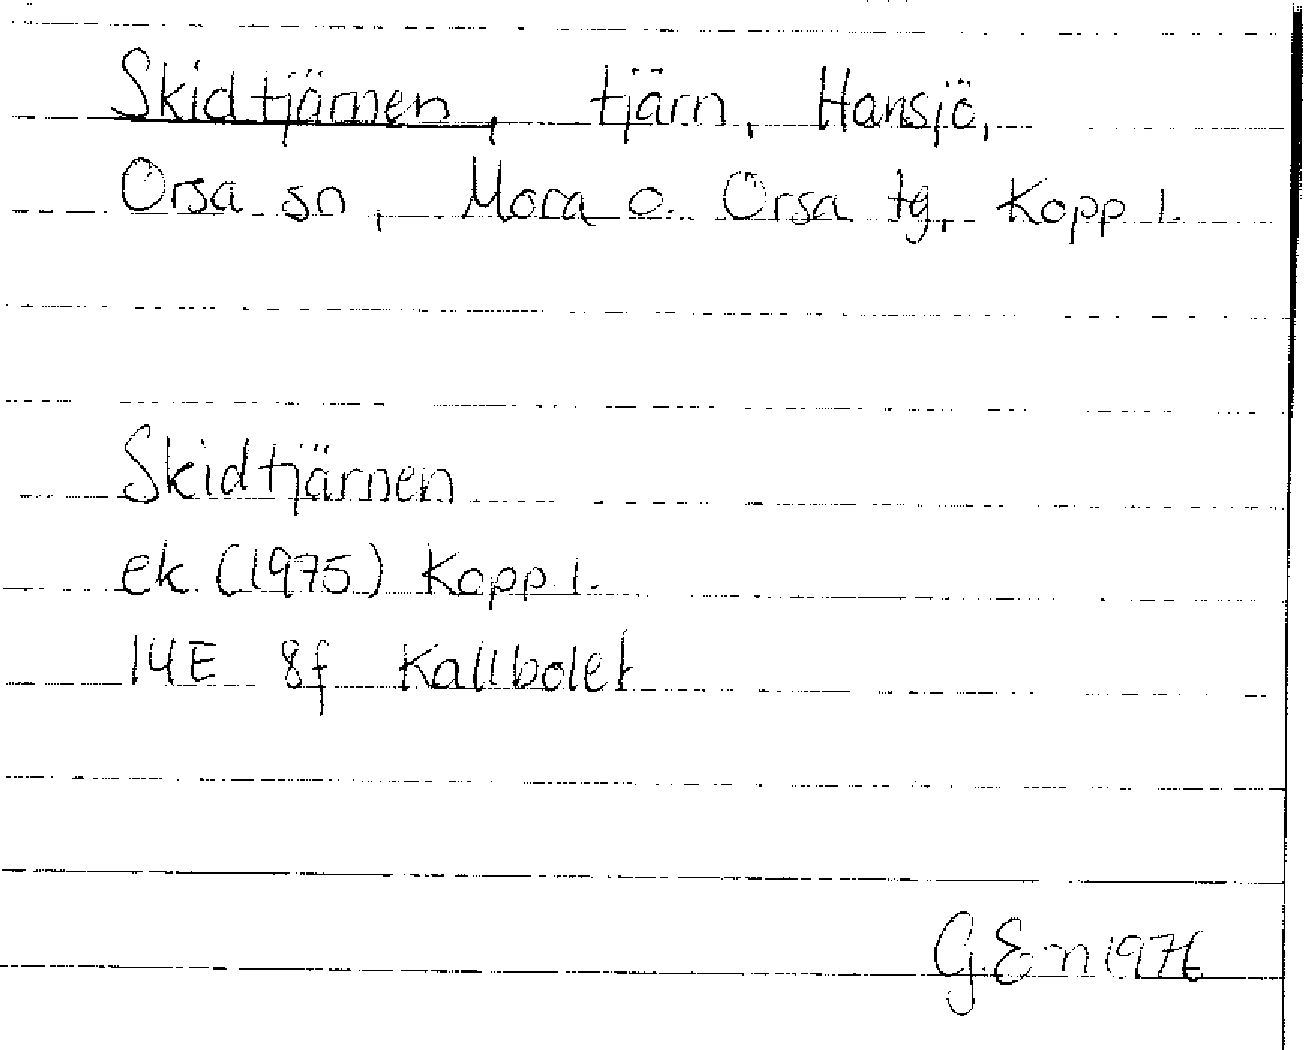 Skidtjärnen, tjärn, Hansjö,
Orsa sn, Mora o. Orsa tg, Kopp l.
Skidtjärnen
ek (1975) Kopp l.
14E 8f Kallbolet
G.E-n 1976